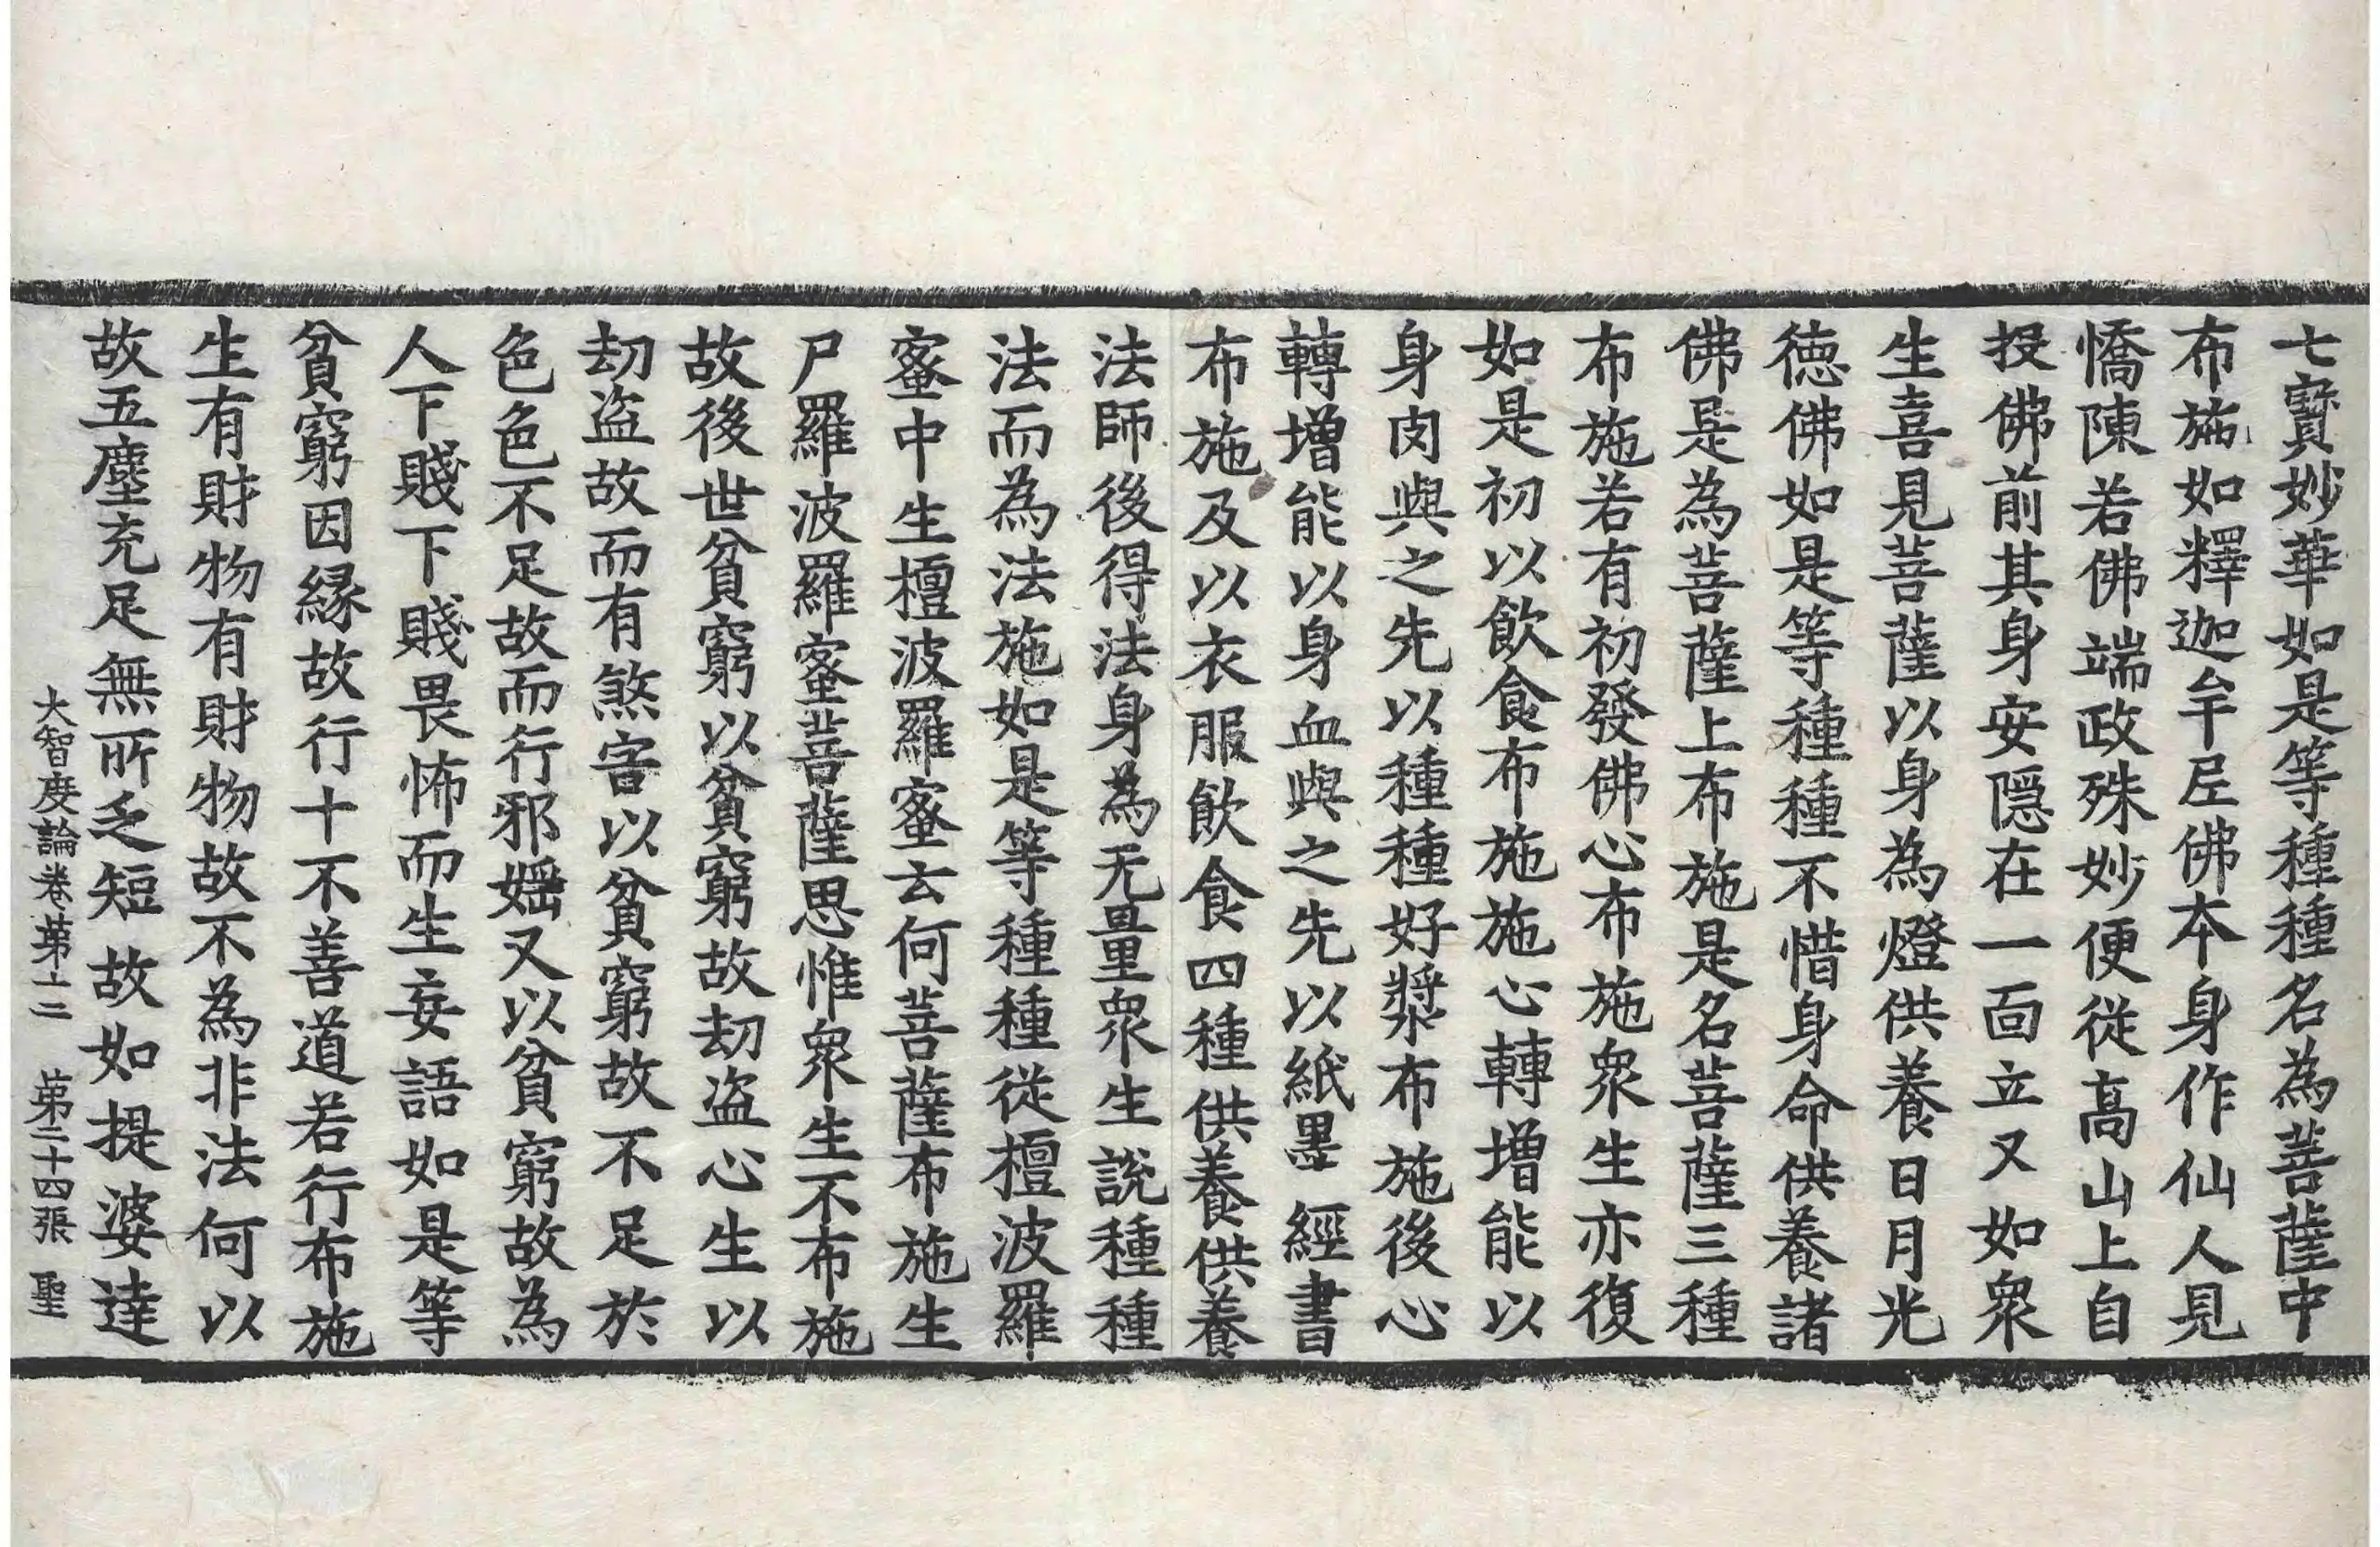 七寶妙華如是等種種名為菩薩中
布施如釋迦牟尼佛本身作仙人見
憍陳若佛端政殊妙便從高山上自
投佛前其身安隱在一面立又如衆
生喜見菩薩以身為燈供養日月光
德佛如是等種種不惜身命供養諸
佛是為菩薩上布施是名菩薩三種
布施若有初發佛心布施衆生亦復
如是初以飲食布施施心轉增能以
身肉與之先以種種好漿布施後心
轉增能以身血與之先以紙墨經書
布施及以衣服飲食四種供養供養
法師後得法身為无量衆生說種種
法而為法施如是等種種從檀波羅
蜜中生檀波羅蜜云何菩薩布施生
尸羅波羅蜜菩薩思惟衆生不布施
故後世貧窮以貧窮故劫盜心生以
劫盜故而有煞害以貧窮故不足於
色色不足故而行邪婬又以貧窮故為
人下賤下賤畏怖而生妄語如是等
貧窮因緣故行十不善道若行布施
生有財物有財物故不為非法何以
故五塵充足無所乏短故如提婆達
大智度論卷第十二 第二十四張 聖